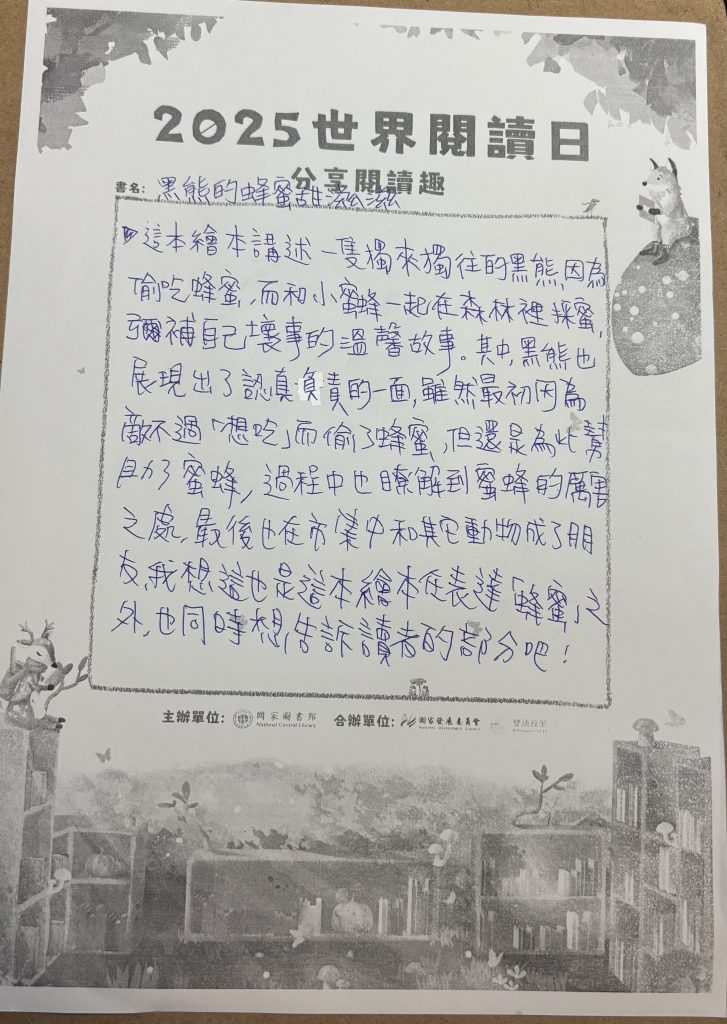 2025世界閱讀日
分享閱讀趣
書名：黑熊的蜂蜜甜滋滋
這本繪本講述一隻獨來獨往的黑熊，因為
偷吃蜂蜜，而和小蜜蜂一起在森林裡採蜜，
彌補自己壞事的溫馨故事。其中，黑熊也
展現出了認真負責的一面，雖然最初因為
敵不過「想吃」而偷了蜂蜜，但還是為此幫
助了蜜蜂，過程中也瞭解到蜜蜂的厲害
之處，最後也在市集中和其它動物成了朋
友，我想，這也是這本繪本在表達「蜂蜜」之
外，也同時想告訴讀者的部分吧！
主辦單位：國家圖書館 National Central Library 合辦單位：國家發展委員會 National Development Council 雙語政策 Bilingual